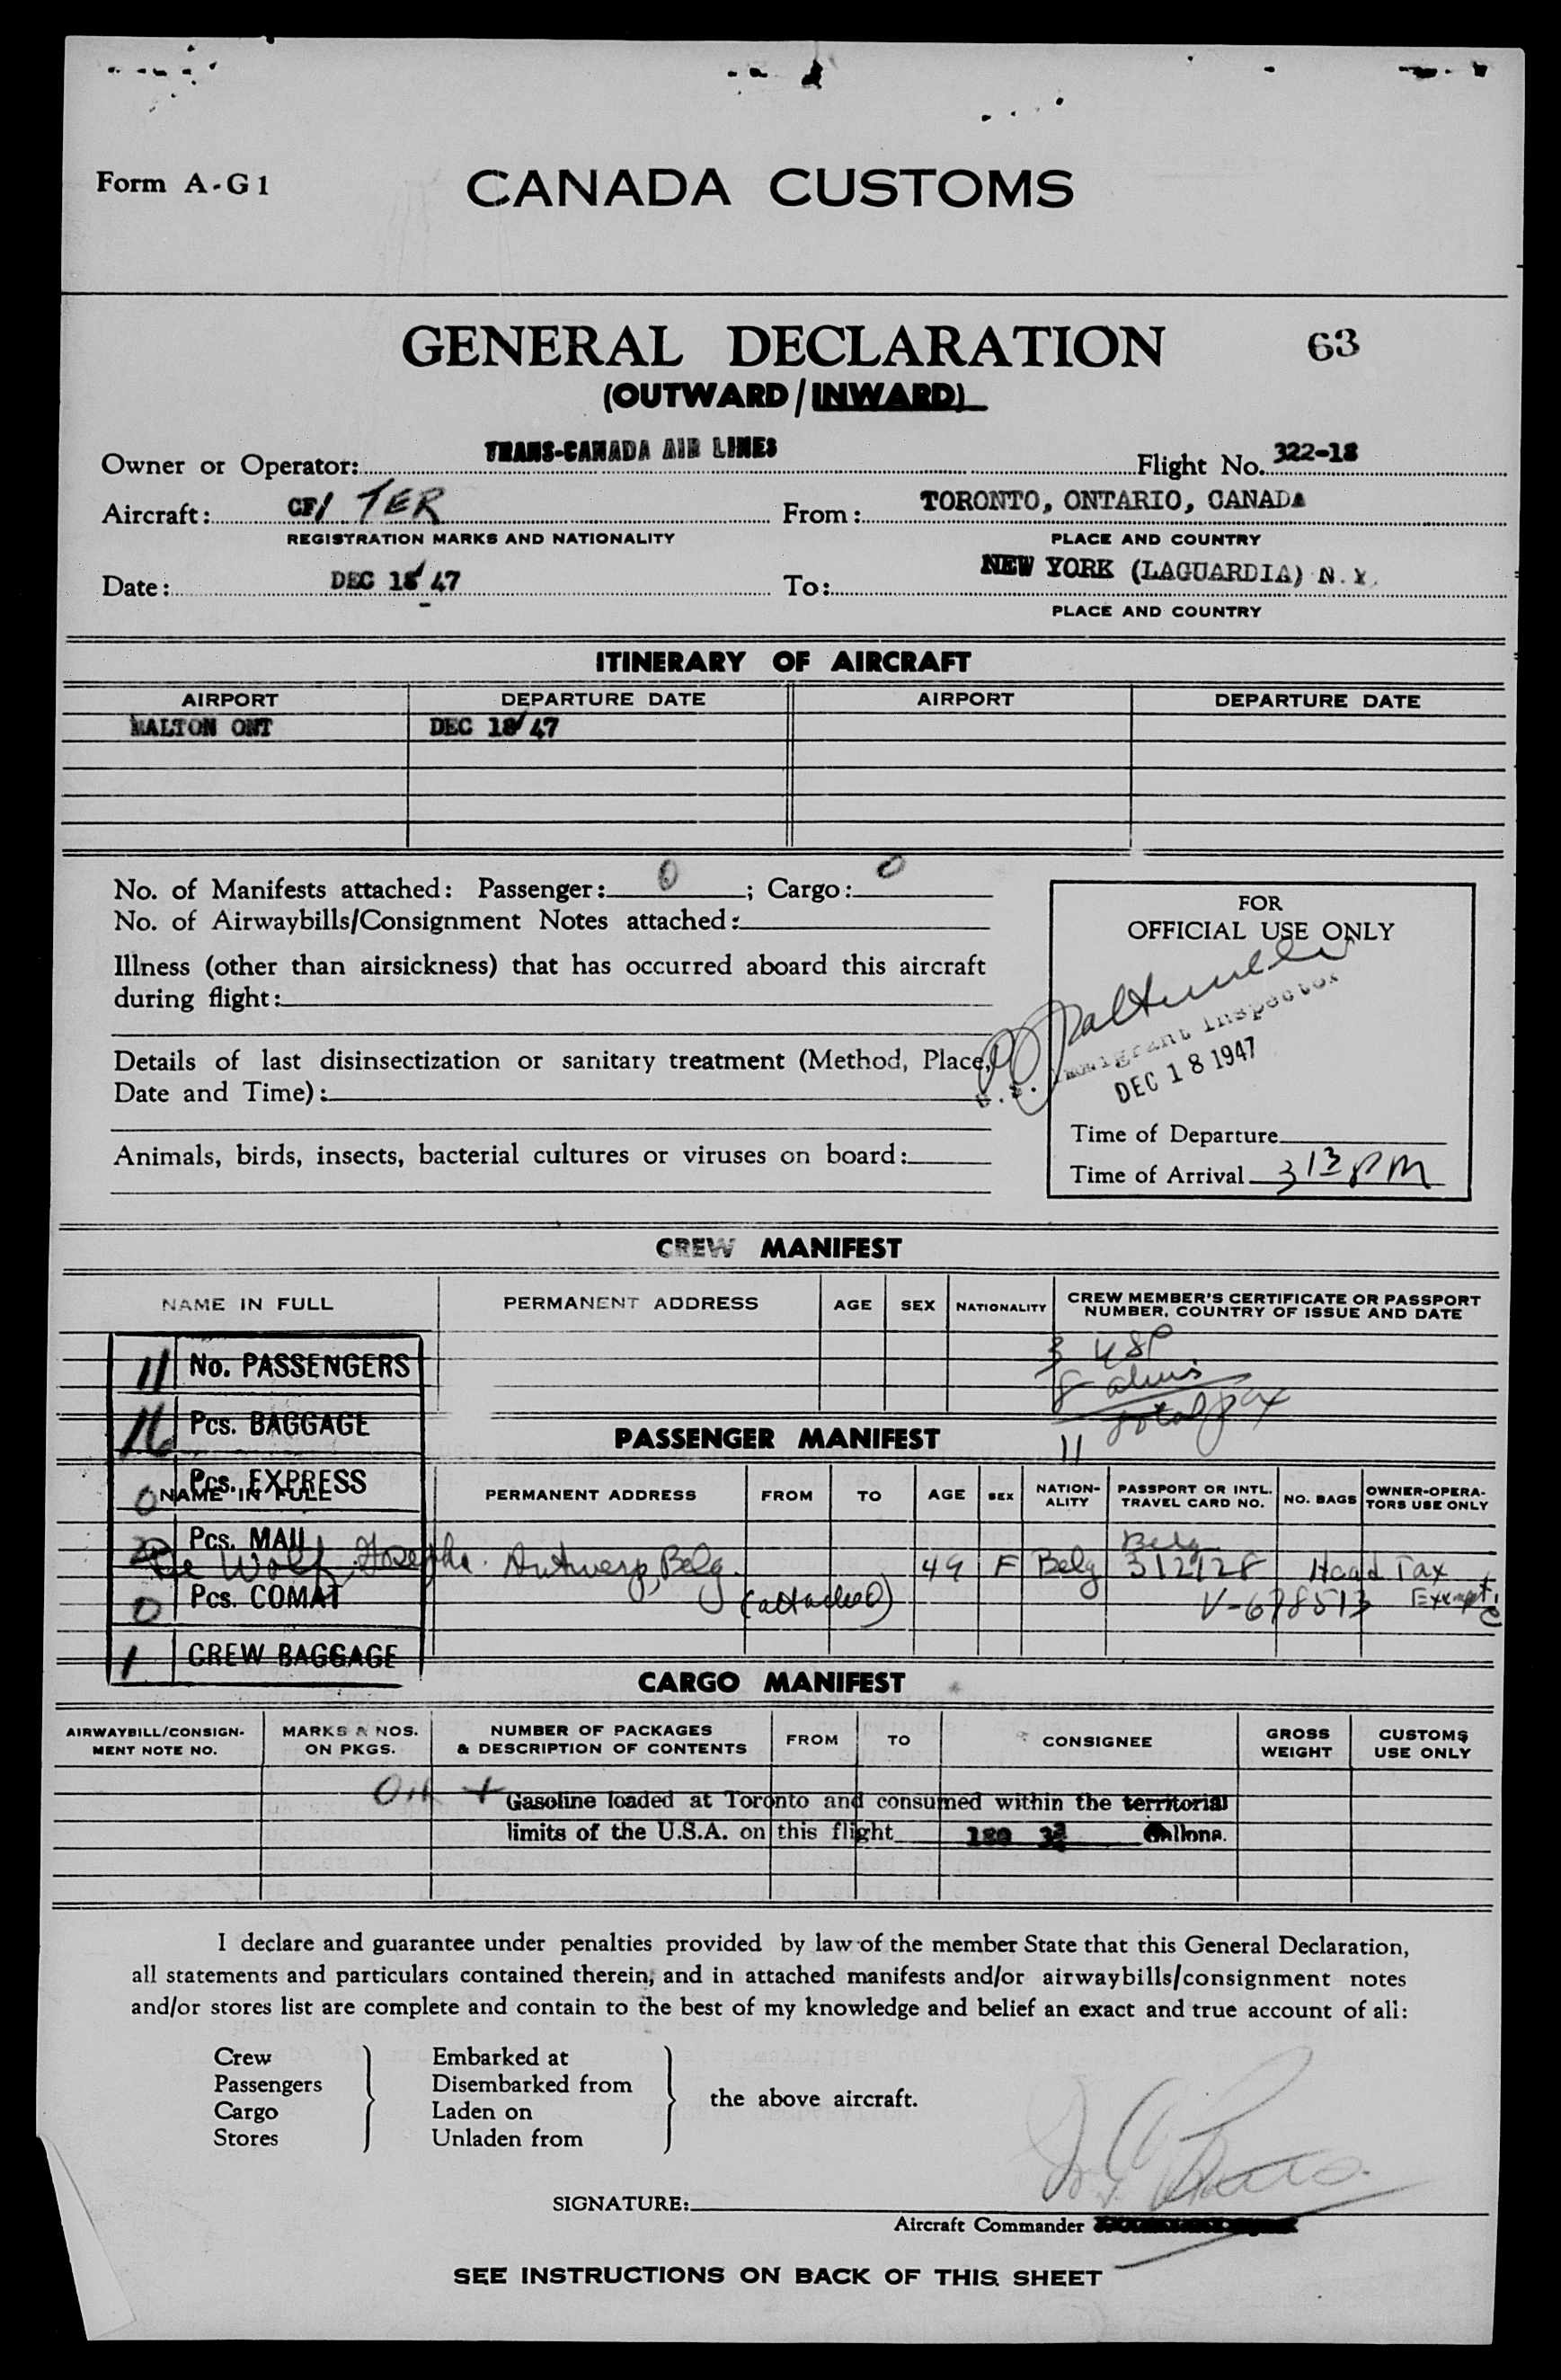 Form A-G1
CANADA CUSTOMS
GENERAL DECLARATION 63
(OUTWARD/INWARD)
Owner or Operator: TRANS-CANADA AIR LINES Flight No. 322-18
Aircraft: CF/ TER From: TORONTO, ONTARIO, CANADA
REGISTRATION MARKS AND NATIONALITY PLACE AND COUNTRY
Date: DEC 18/47 To: NEW YORK (LAGUARDIA) N.Y.
PLACE AND COUNTRY
ITINERARY OF AIRCRAFT
AIRPORT DEPARTURE DATE AIRPORT DEPARTURE DATE
MALTON ONT DEC 18/47
No. of Manifests attached: Passenger: 0; Cargo: 0
No. of Airwaybills/Consignment Notes attached:
Illness (other than airsickness) that has occurred aboard this aircraft
during flight:
Details of last disinsectization or sanitary treatment (Method, Place,
Date and Time):
Animals, birds, insects, bacterial cultures or viruses on board:
FOR
OFFICIAL USE ONLY
U.S. Immigrant Inspector
DEC 18 1947
Time of Departure
Time of Arrival 313 PM
CREW MANIFEST
NAME IN FULL PERMANENT ADDRESS AGE SEX NATIONALITY CREW MEMBER'S CERTIFICATE OR PASSPORT
NUMBER, COUNTRY OF ISSUE AND DATE
11 No. PASSENGERS
16 Pcs. BAGGAGE
0 Pcs. EXPRESS
Pcs. MAIL
0 Pcs. COMAT
1 CREW BAGGAGE
3
8
11 total pax
PASSENGER MANIFEST
NAME IN FULL PERMANENT ADDRESS FROM TO AGE SEX NATION-
ALITY PASSPORT OR INTL.
TRAVEL CARD NO. NO. BAGS OWNER-OPERA-
TORS USE ONLY
Belg
De Wolf, Josepha. Antwerp, Belg. 49 F Belg 312128 Head Tax
(attached) V-678513 Exempt
CARGO MANIFEST
AIRWAYBILL/CONSIGN-
MENT NOTE NO. MARKS & NOS.
ON PKGS. NUMBER OF PACKAGES
& DESCRIPTION OF CONTENTS FROM TO CONSIGNEE GROSS
WEIGHT CUSTOMS
USE ONLY
Oil + Gasoline loaded at Toronto and consumed within the territorial
limits of the U.S.A. on this flight 180 Gallons.
I declare and guarantee under penalties provided by law of the member State that this General Declaration,
all statements and particulars contained therein, and in attached manifests and/or airwaybills/consignment notes
and/or stores list are complete and contain to the best of my knowledge and belief an exact and true account of all:
Crew Embarked at
Passengers Disembarked from
Cargo Laden on
Stores Unladen from
the above aircraft.
SIGNATURE:
Aircraft Commander
SEE INSTRUCTIONS ON BACK OF THIS SHEET